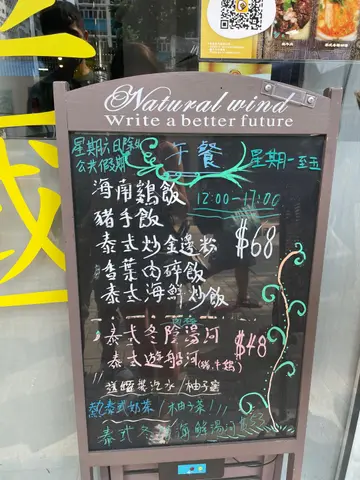 Natural wind
Write a better future
星期六日除外
公眾假期
午餐
星期一至五
海南鷄飯
12:00-17:00
豬手飯
泰式炒金邊粉
$68
香葉肉碎飯
泰式海鮮炒飯
泰式冬陰湯河
泰式遊船河(豬,牛,鷄)
$48
送罐裝汽水/柚子蜜
熱泰式奶茶/柚子茶/
泰式冬 海鮮湯河